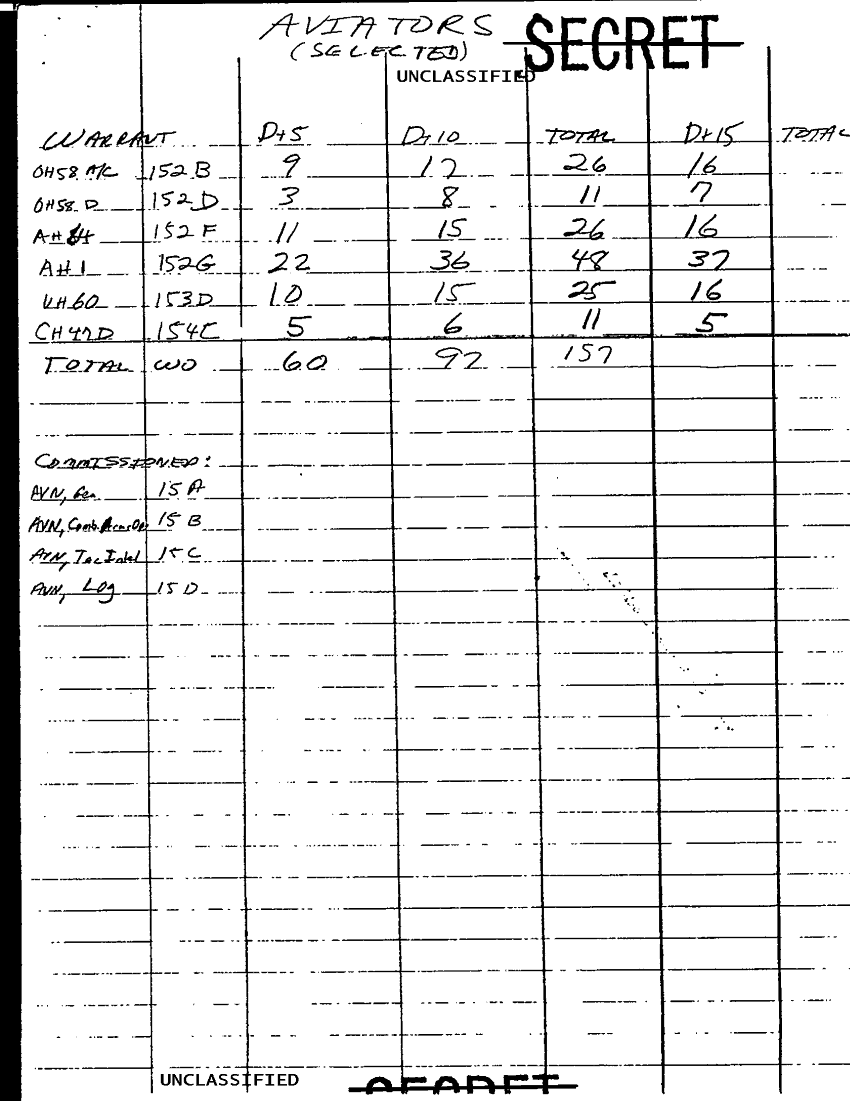 AVIATORS
(SELECTED)
SECRET
UNCLASSIFIED
WARRANT D+5 D+10 TOTAL D+15 TOTAL
OH58 A/C 152B 9 17 26 16
OH58 D 152D 3 8 11 7
AH 152F 11 15 26 16
AH1 152G 22 36 48 37
UH60 153D 10 15 25 16
CH47D 154C 5 6 11 5
TOTAL WO 60 92 157
COMMISSIONED:
AVN, Gen 15 A
AVN, Comb 15 B
AVN, Tac Intel 15 C
AVN, Log 15 D
UNCLASSIFIED
SECRET